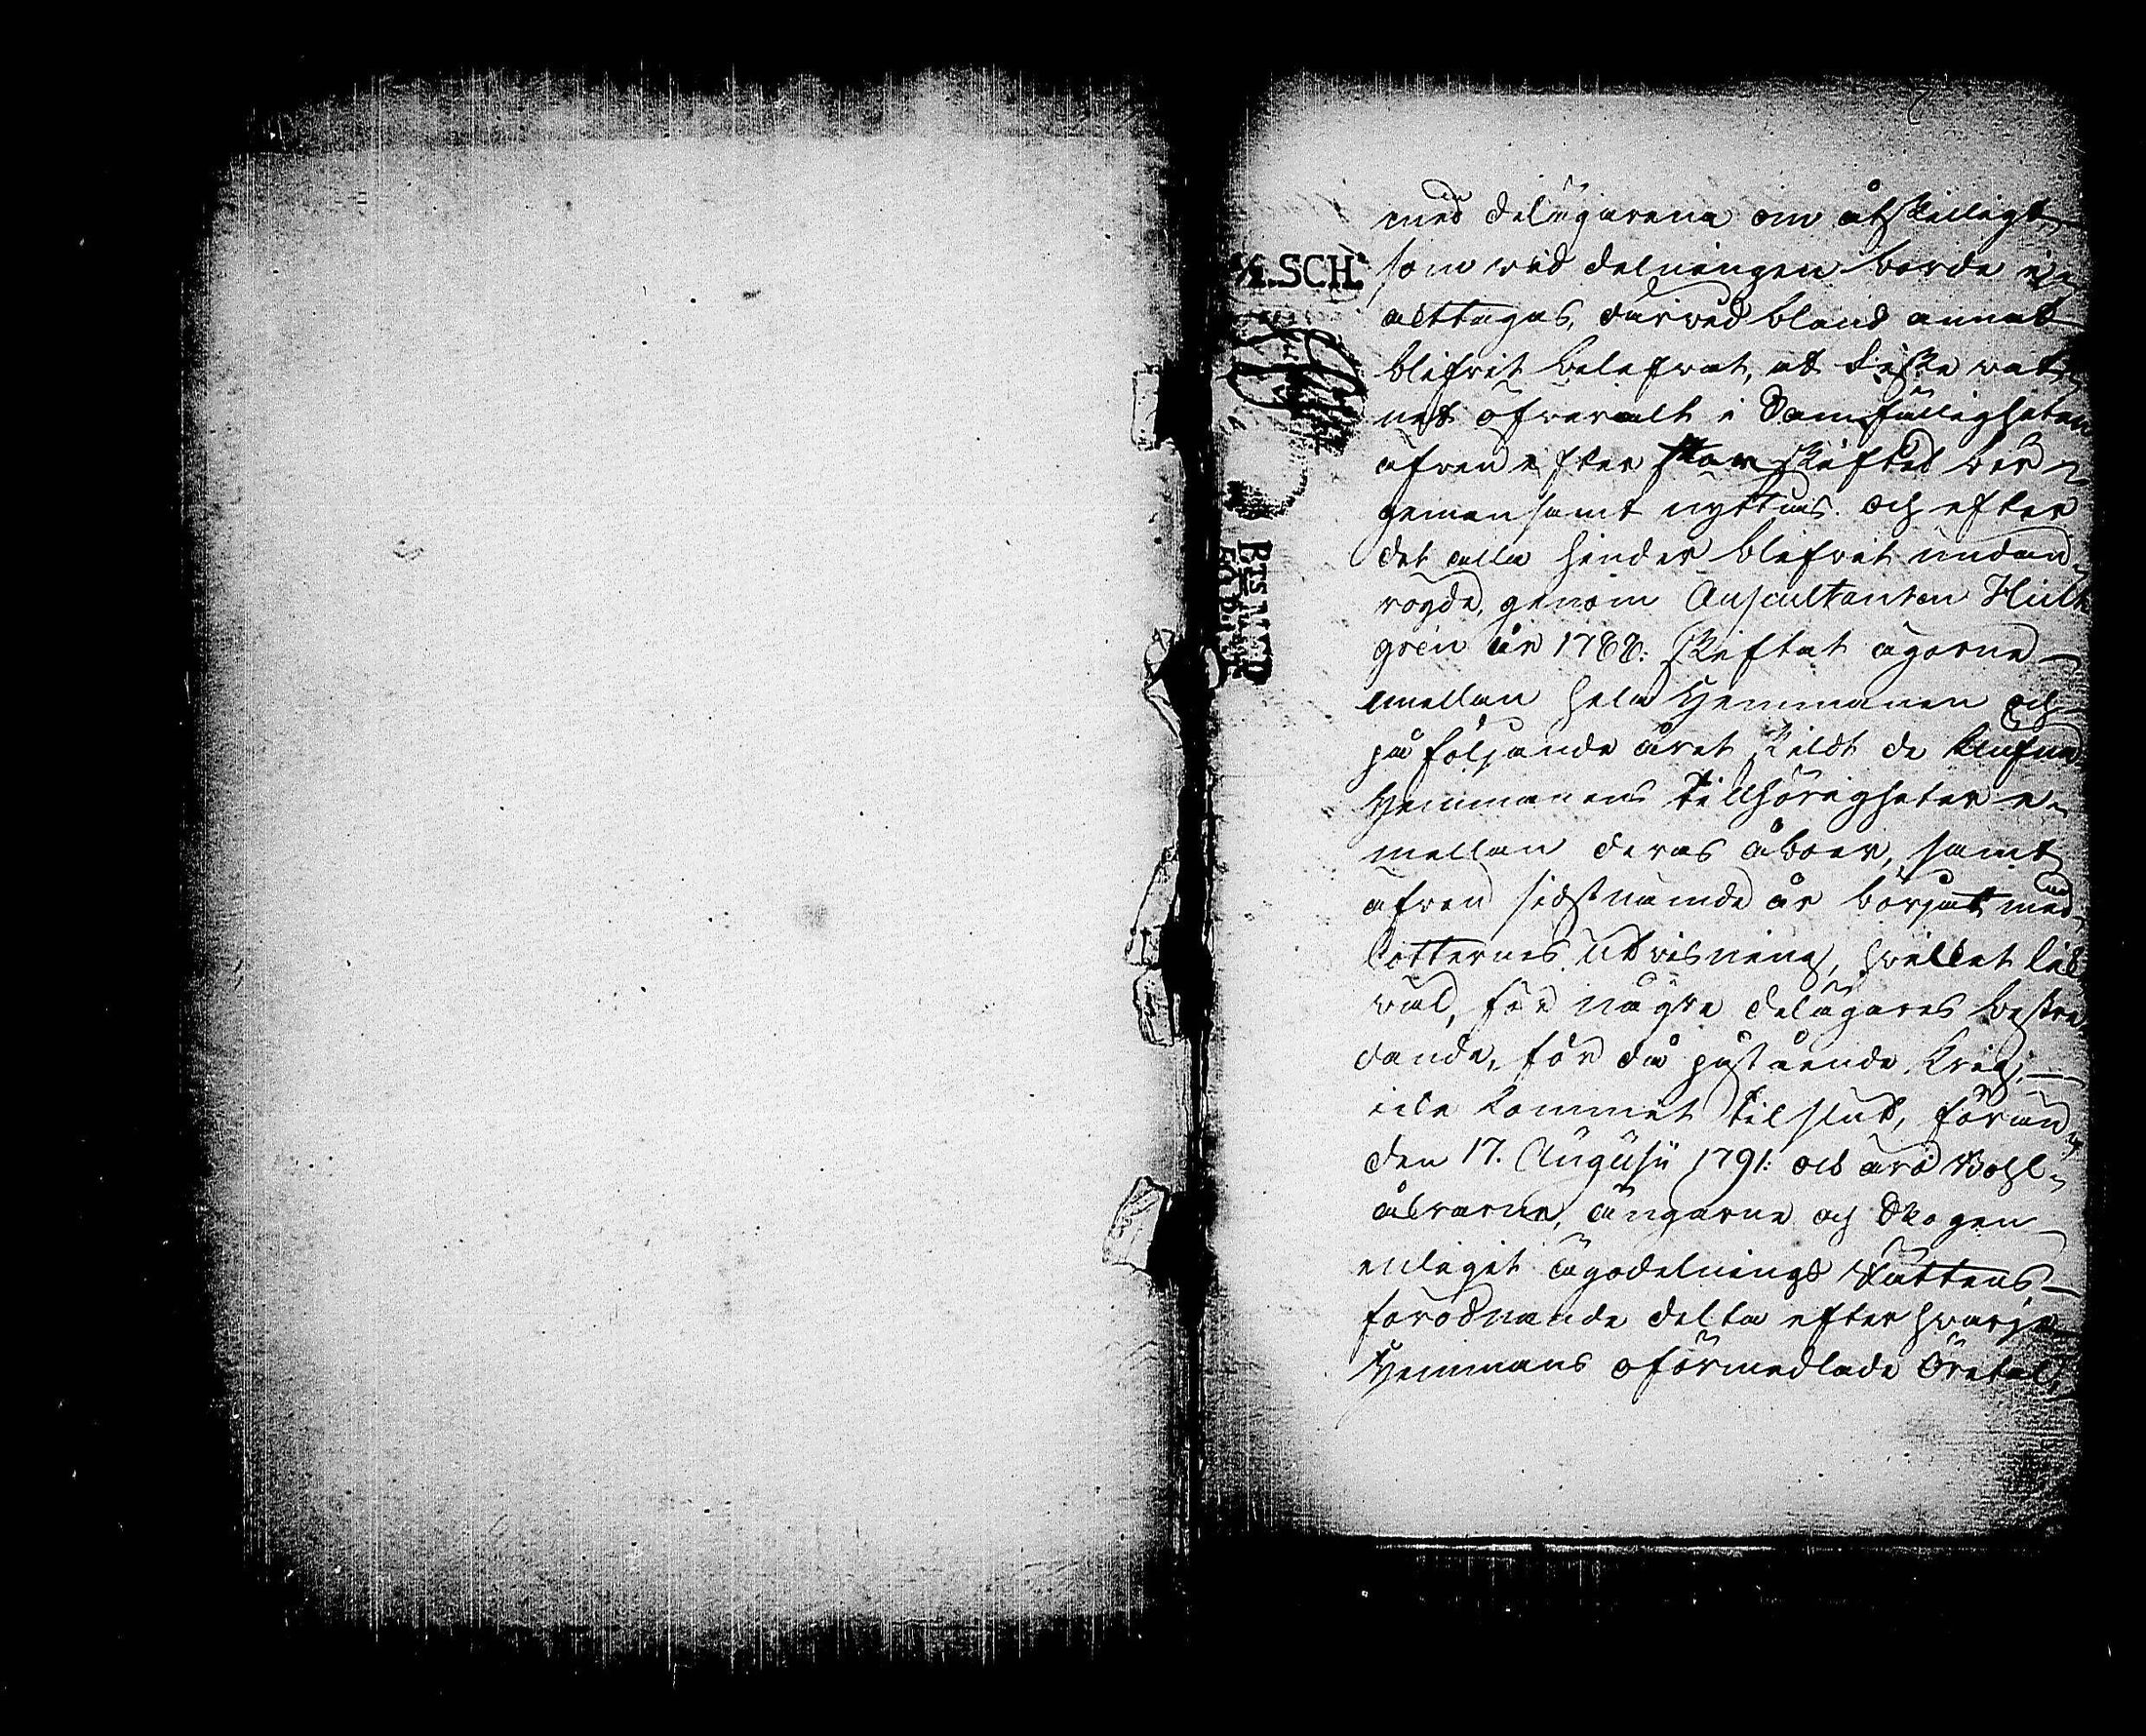 med delägarena om åtskilligt
som wid delningen borde i
akttagas, därwid bland annat
blifvit belefwat, at fiske wat
net öfweralt i Samfälligheten
äfwen efter Storskiftet bör
gemensamt nyttjas. och efter
det alla hinder blifvit undan
röjde, genom Auscultanten Hult
grén år 1788: Skiftat ägorne
emellan hela Hemmanen och
på följande året Skildt de klufna
Hemmanens tillhörigheter e
mellan deras åboer, samt
äfwen sidstnämde år börjat med
lotternes Utwisning, hwilket lik
wäl, för några delägares bestri
dande, för då påstående Krig,
icke kommet til slut, förän
den 17. Augusti 1791: och äro Bohl
åkrarne, ängarne och Skogen
enligit Ägodelnings Rättens
förordnande delta efter hwarje
Hemmans oförmedlade Öretal,
½.SCH.